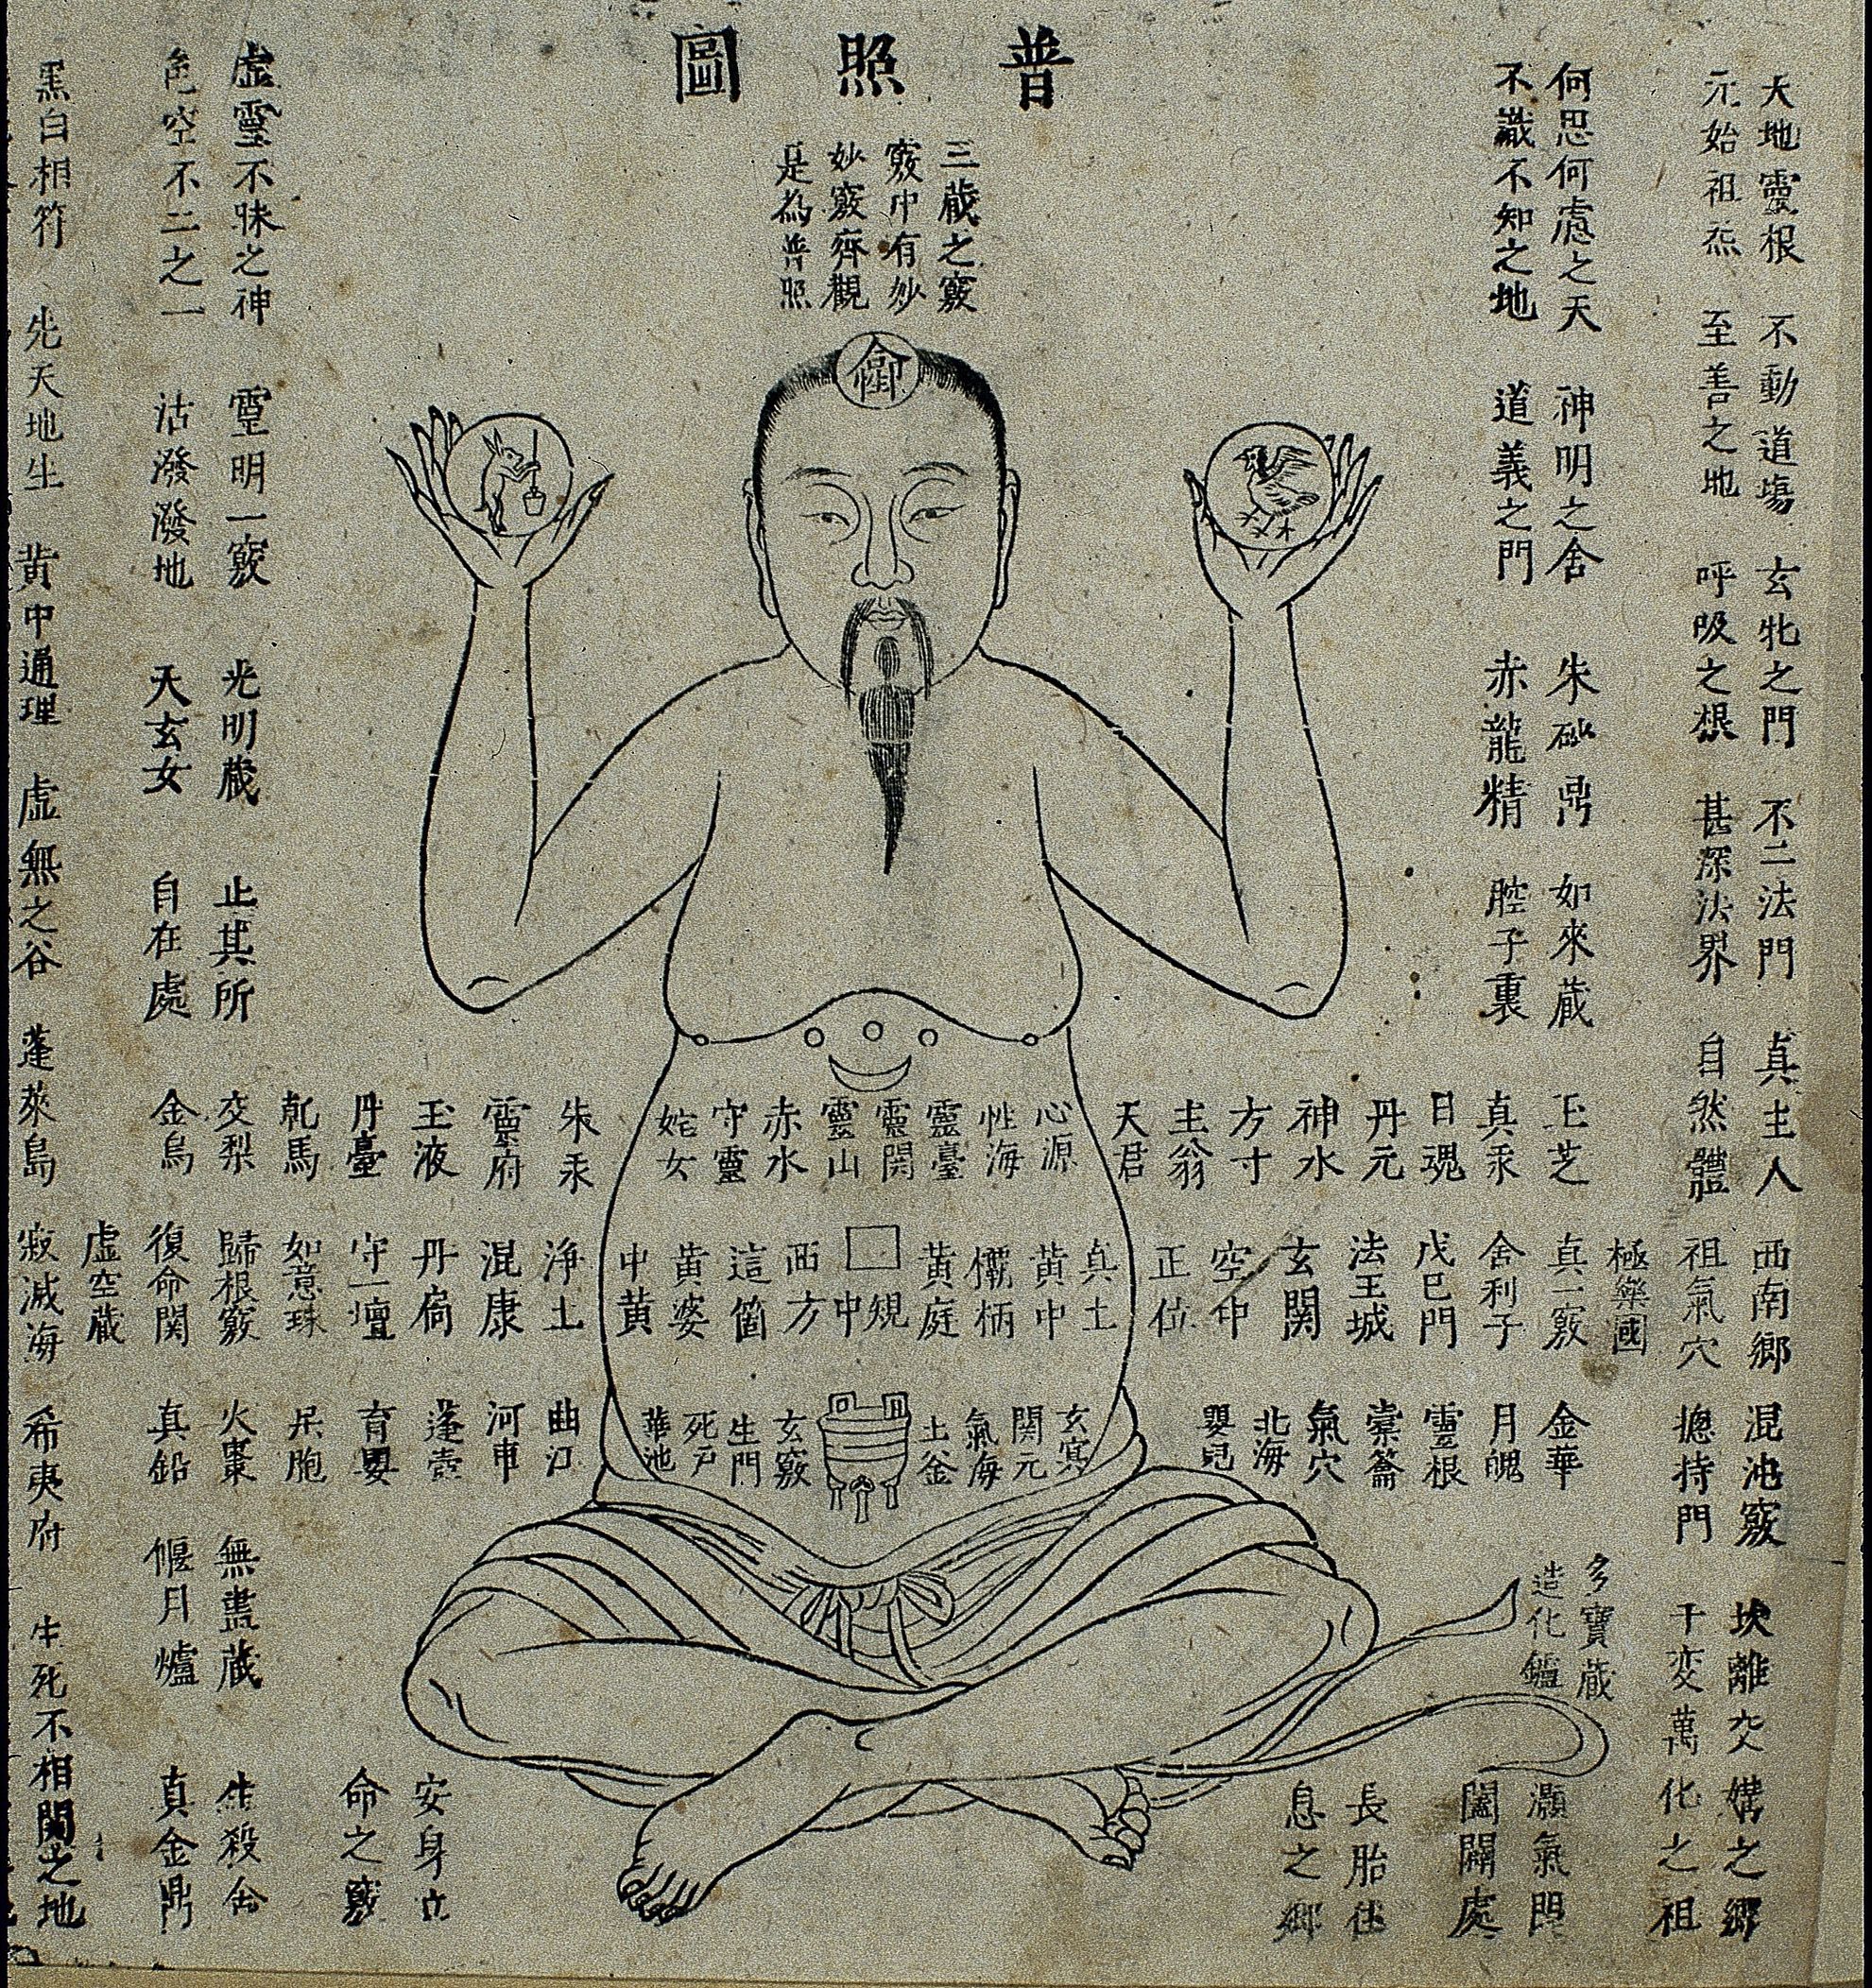 普照圖
三藏之竅
竅中有妙
妙竅齊觀
是為普照
大地靈根 不動道場 玄牝之門 不二法門 真主人 西南鄉 混沌竅 坎離交媾之鄉
元始祖炁 至善之地 呼吸之根 甚深法界 自然體 祖氣穴 摠持門 千変萬化之祖
極樂國
何思何慮之天 神明之舍 朱砂鼎 如來藏
不識不知之地 道義之門 赤龍精 腔子裏
玉芝
真汞
日魂
丹元
神水
方寸
主翁
天君
心源
性海
靈臺
靈関
靈山
赤水
守靈
姹女
朱汞
靈府
玉液
丹臺
乾馬
交梨
金烏
真一竅
舍利子
戊巳門
法王城
玄関
空中
正位
真土
黄中
欛柄
黄庭
規
中
西方
這箇
黄婆
中黄
淨土
混康
丹扃
守一壇
如意珠
歸根竅
復命関
虛空藏
金華
月魄
靈根
橐籥
氣穴
北海
嬰兒
玄冥
関元
氣海
土釜
玄竅
生門
死戸
華池
曲江
河車
蓬壺
育嬰
呆胞
火棗
真鉛
多寶藏
造化鑪
灝氣門
闔闢處
長胎住
息之鄉
安身立
命之竅
無盡藏 生殺舍
偃月爐 真金鼎
虛靈不昧之神 靈明一竅 光明藏 止其所
色空不二之一 活潑潑地 天玄女 自在處
黑白相符 先天地生 黄中通理 虛無之谷 蓬萊島 寂滅海 希夷府 生死不相関之地